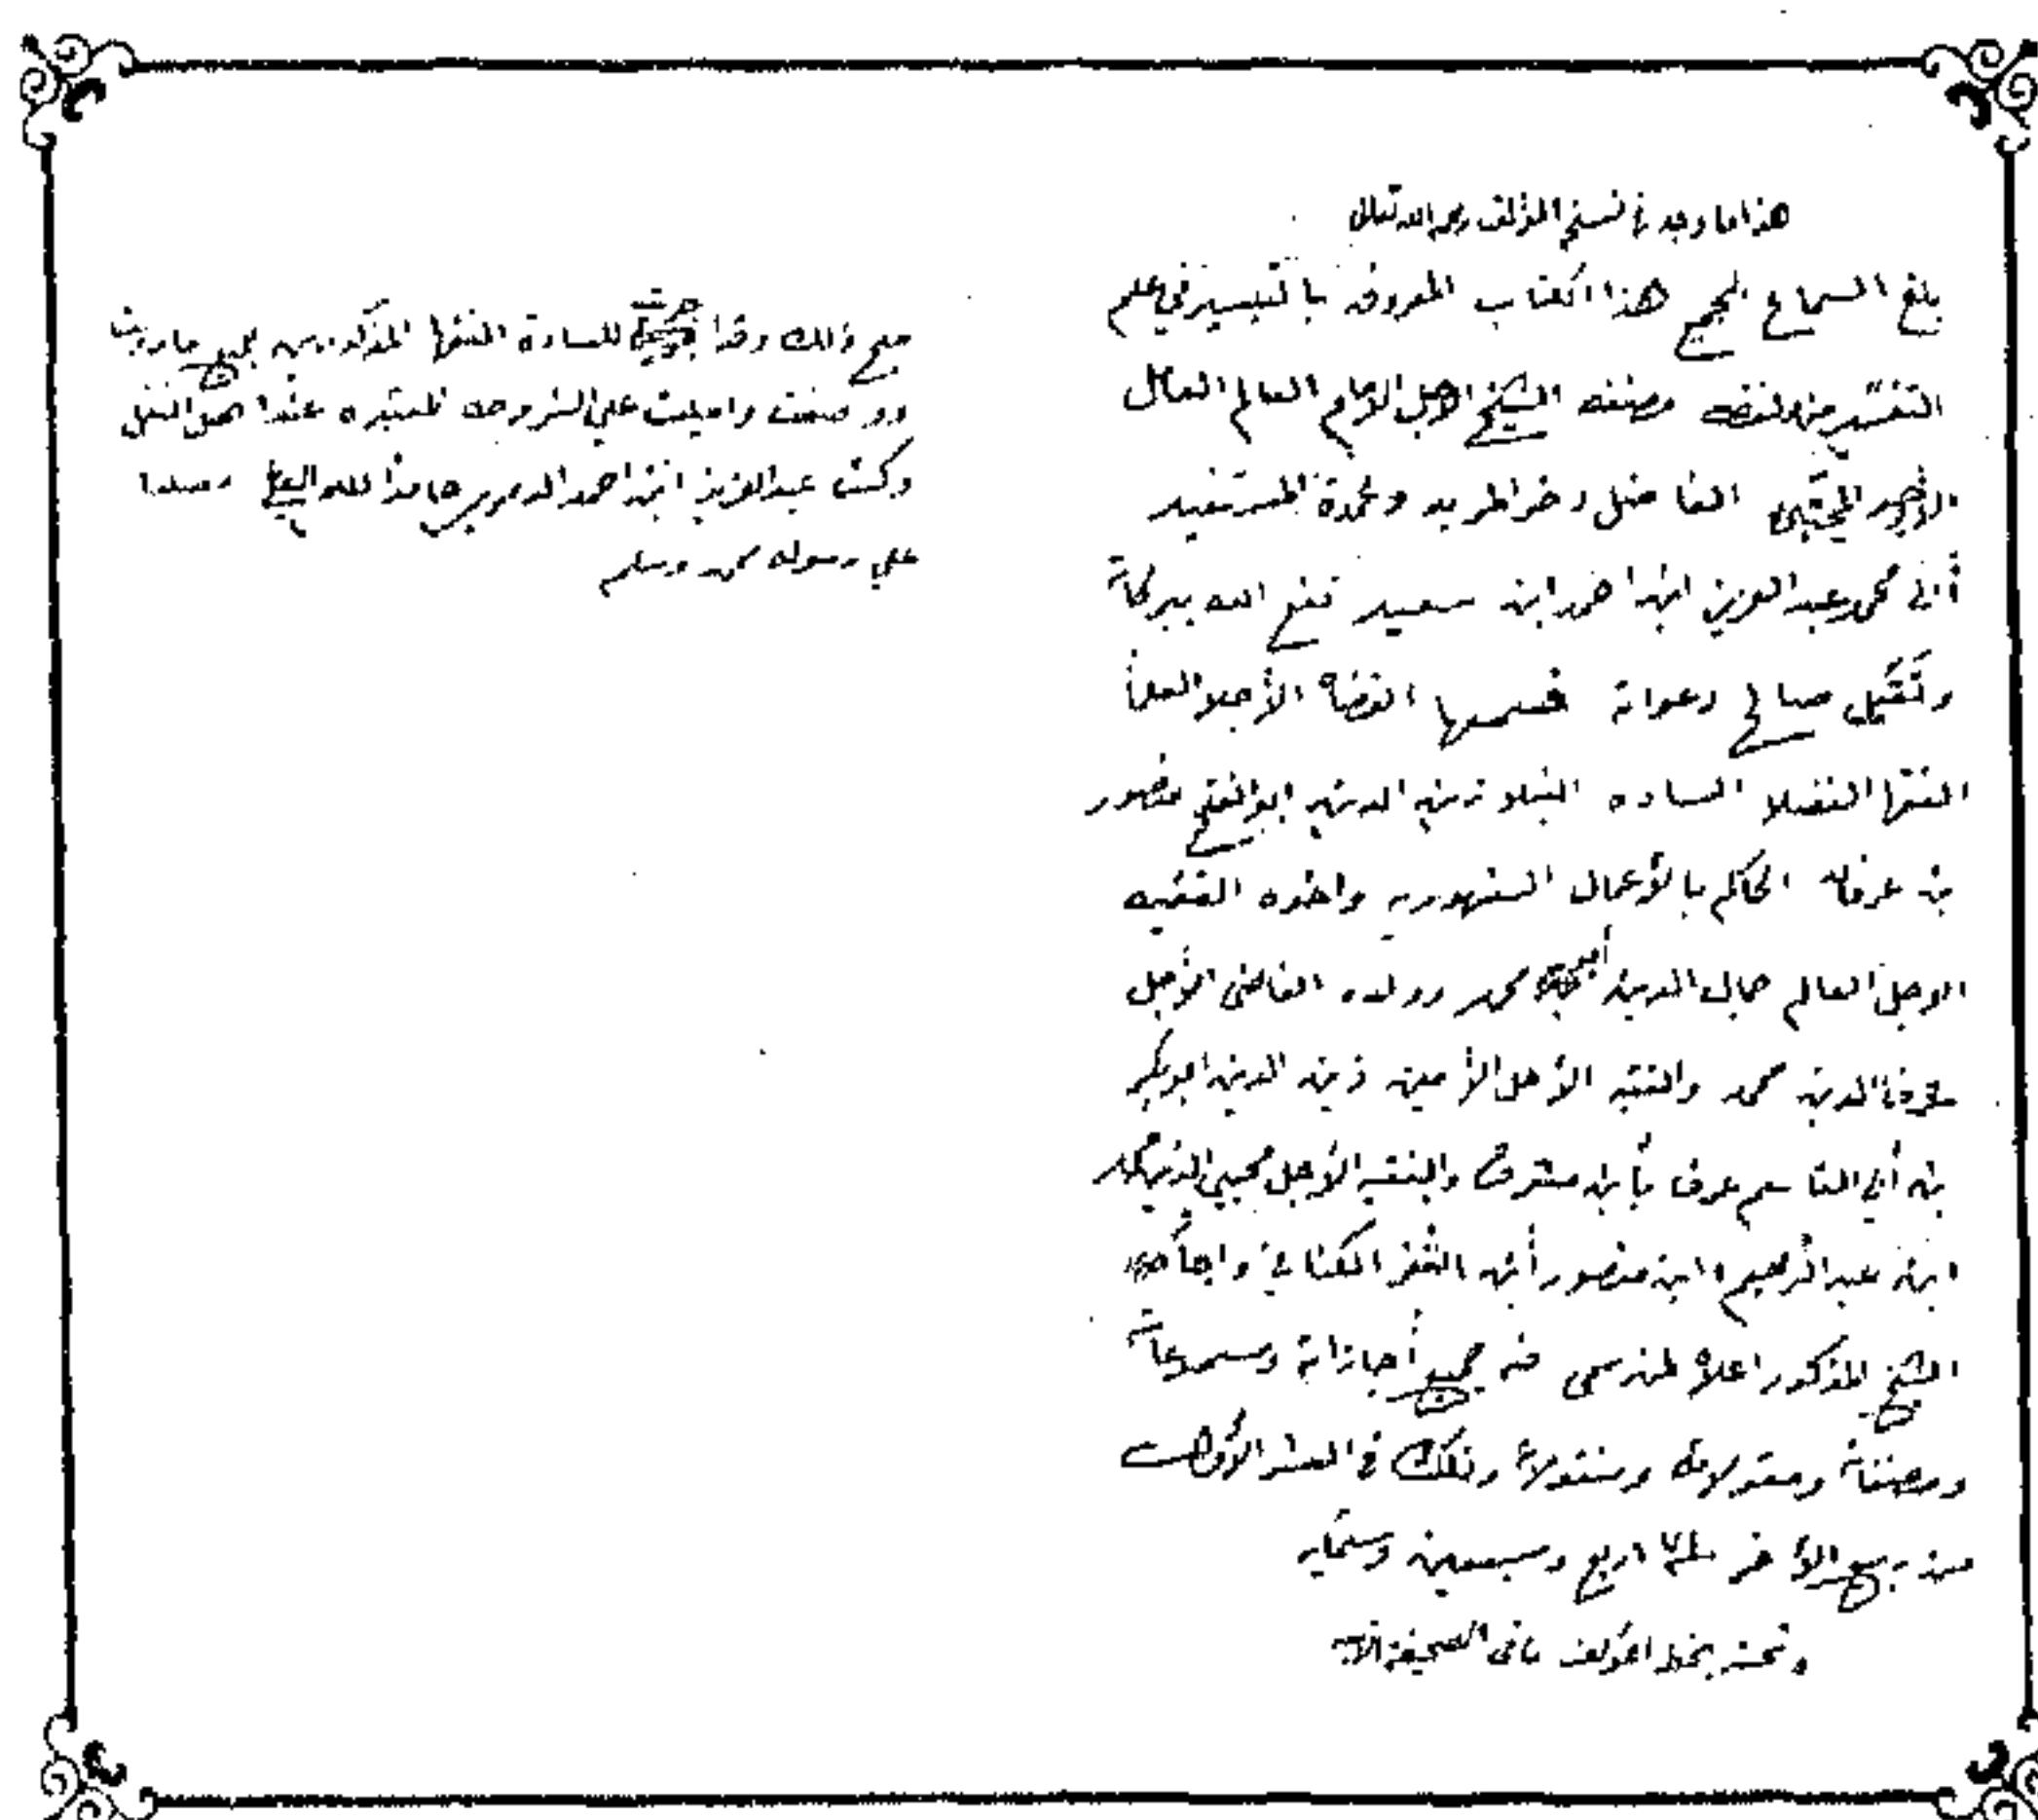 هذا ما وجد في نسخ المؤلف رحمه الله تعالى
بلغ السماع لجميع هذا الكتاب المعروف بالتيسير في علم
التفسير من لفظه مصنفه الشيخ الأجل الإمام العالم العامل
الفاضل ذخر المريد وعمدة المستفيد
أبي محمد عبد العزيز ابن احمد ابن سعيد نفع الله ببركاته
وتقبل صالح دعواته فسمعها القضاة الأجلا العلماء
الفقها الفضلا الساده النبلا زين الدين ابو الفتح منصور
بن عرفات الحاكم بالأعمال السنهوريه واخوه الفقيه
الاجل العالم جمال الدين محمد وولده القاضي الأجل
شرف الدين محمد والفقيه الأجل الأمين زين الدين ابو بكر
بن أبي القاسم عرف بأبن مشرف والفقيه الأجل محيي الدين محمد
ابن عبد الرحيم ابن منصور أبن الكناني واجاز
الشيخ المذكور اعلاه لمن سمي منه جميع أجازاته ومسموعاته
ومصنفاته ومقولاته ومنقولاته وذلك في العشر الأول
من ربيع الأخر سنة اربع وسبعين وستمايه
وتحته بخط المؤلف ما في الصحيفة الآتية
صح ذلك وقد أجزت للسادة الفقها المذكورين جميع ما رويت
وو صنفت وامليت علي الشروط المعتبره عند اهل النقل
وكتب عبد العزيز ابن احمد الدميري حامدا لله ومصليا
علي رسوله محمد ومسلم